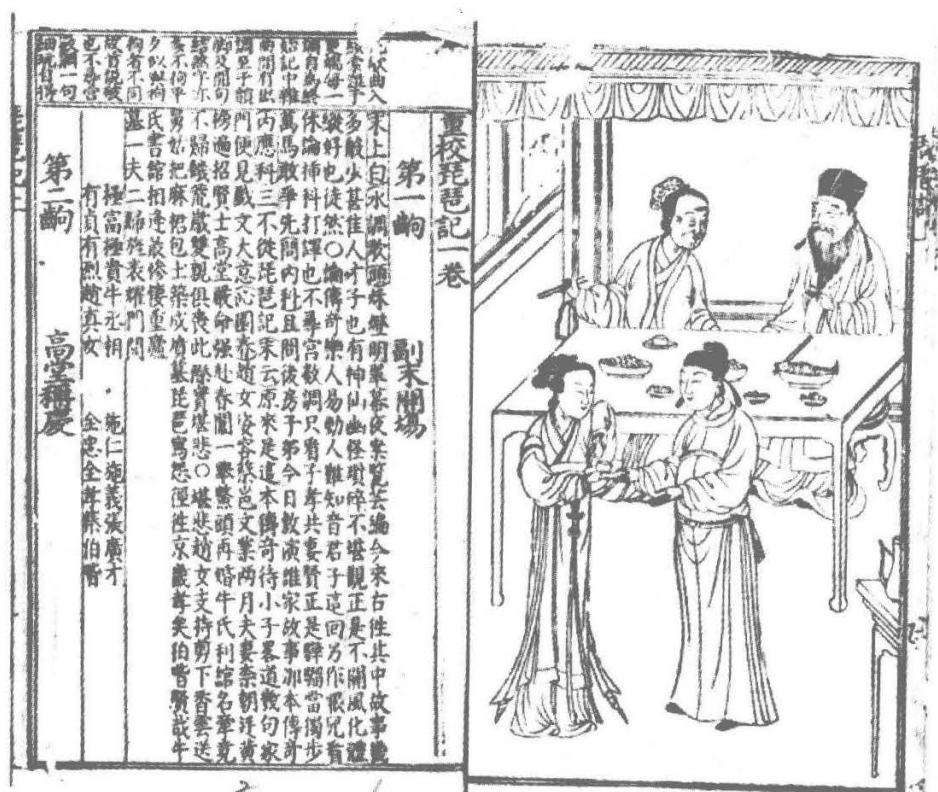 重校琵琶記一卷
第一齣 副末開場
末上白水調歌頭秋燈明翠幕夜案覽芸編今來古徃其中故事幾
多般少甚佳人才子也有神仙幽怪瑣碎不堪觀正是不關風化體
縱好也徒然〇論傳奇樂人易動人難知音君子這回另作眼兒看
休論插科打諢也不尋宮數調只看子孝共妻賢正是驊騮當獨步
萬馬敢爭先問內科且問後房子弟今日敷演誰家故事那本傳奇
內應科三不從琵琶記末云原來是這本傳奇待小子畧道幾句家
門便見戲文大意沁園春趙女姿容蔡邕文業兩月夫妻奈朝廷黃
榜遍招賢士高堂嚴命强赴春闈一舉鰲頭再婚牛氏利綰名牽竟
不歸饑荒歲雙親俱喪此際實堪悲〇堪悲趙女支持剪下香雲送
舅姑把麻裙包土築成墳墓琵琶寫怨徑徃京畿孝矣伯喈賢哉牛
氏書館相逢最慘悽重廬
墓一夫二婦旌表耀門閭
極富極貴牛丞相 施仁施義張廣才
有貞有烈趙真女 全忠全孝蔡伯喈
第二齣 高堂稱慶